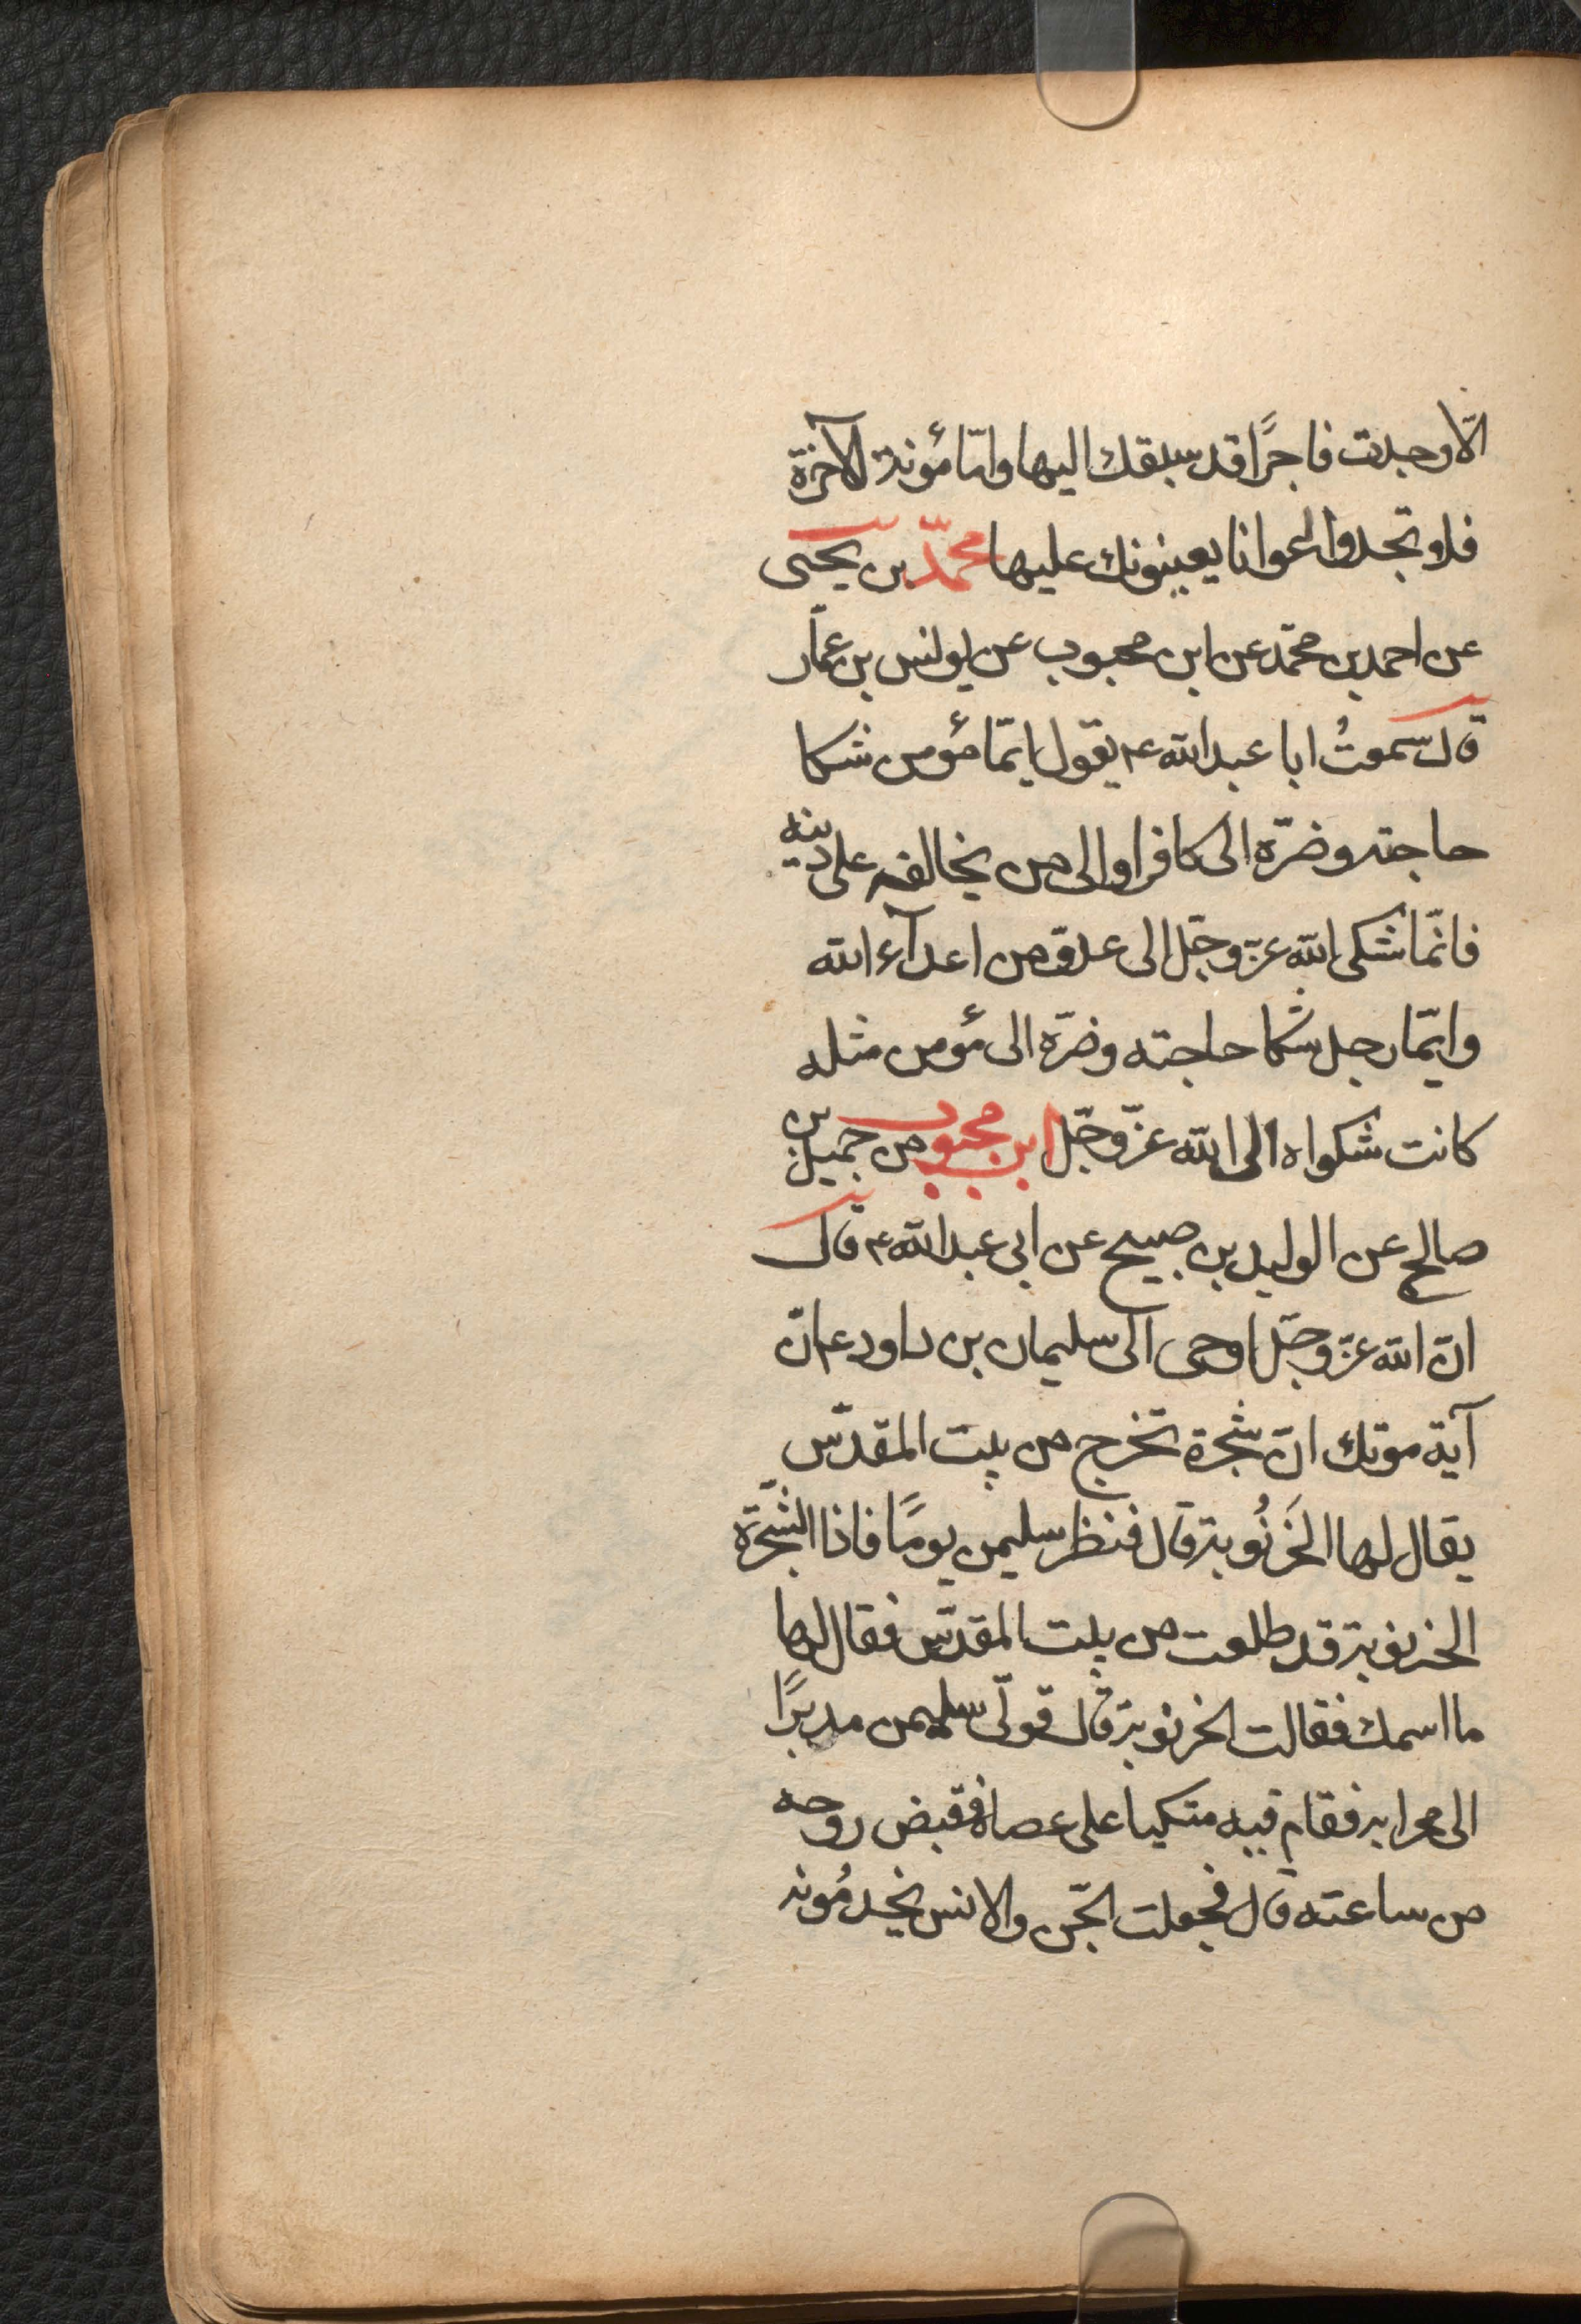 الّا وجدت فاجرًا قد سبقك اليها وامّا مؤنة الآخرة
فلا تجد اعوانا يعينونك عليها محمّد بن يحيى
عن احمد بن محمّد عن ابن محبوب عن يونس بن عمّار
قال سمعتُ ابا عبد الله ع يقول ايّما مؤمن شكا
حاجته وضرّه الى كافر او الى من يخالفه على دينه
فانّما شكى الله عزّ وجلّ الى عدوّ من اعدآء الله
وايّما رجل شكا حاجته وضرّه الى مؤمن مثله
كانت شكواه الى الله عزّ وجلّ ابن محبوب عن جميل بن
صالح عن الوليد بن صبيح عن ابى عبد الله ع قال
انّ الله عزّ وجلّ اوحى الى سليمان بن داود ع انّ
آية موتك انّ شجرة تخرج من بيت المقدّس
يقال لها الخَرنُوبة قال فنظر سليمن يومًا فاذا الشّجرة
الخرنوبة قد طلعت من بيت المقدّس فقال لها
ما اسمك فقالت الخرنوبة قال فولّى سليمن مدبرًا
الى محرابه فقام فيه متكيا على عصاه فقبض روحه
من ساعته قال فجعلت الجّن والانس يخدمُونه